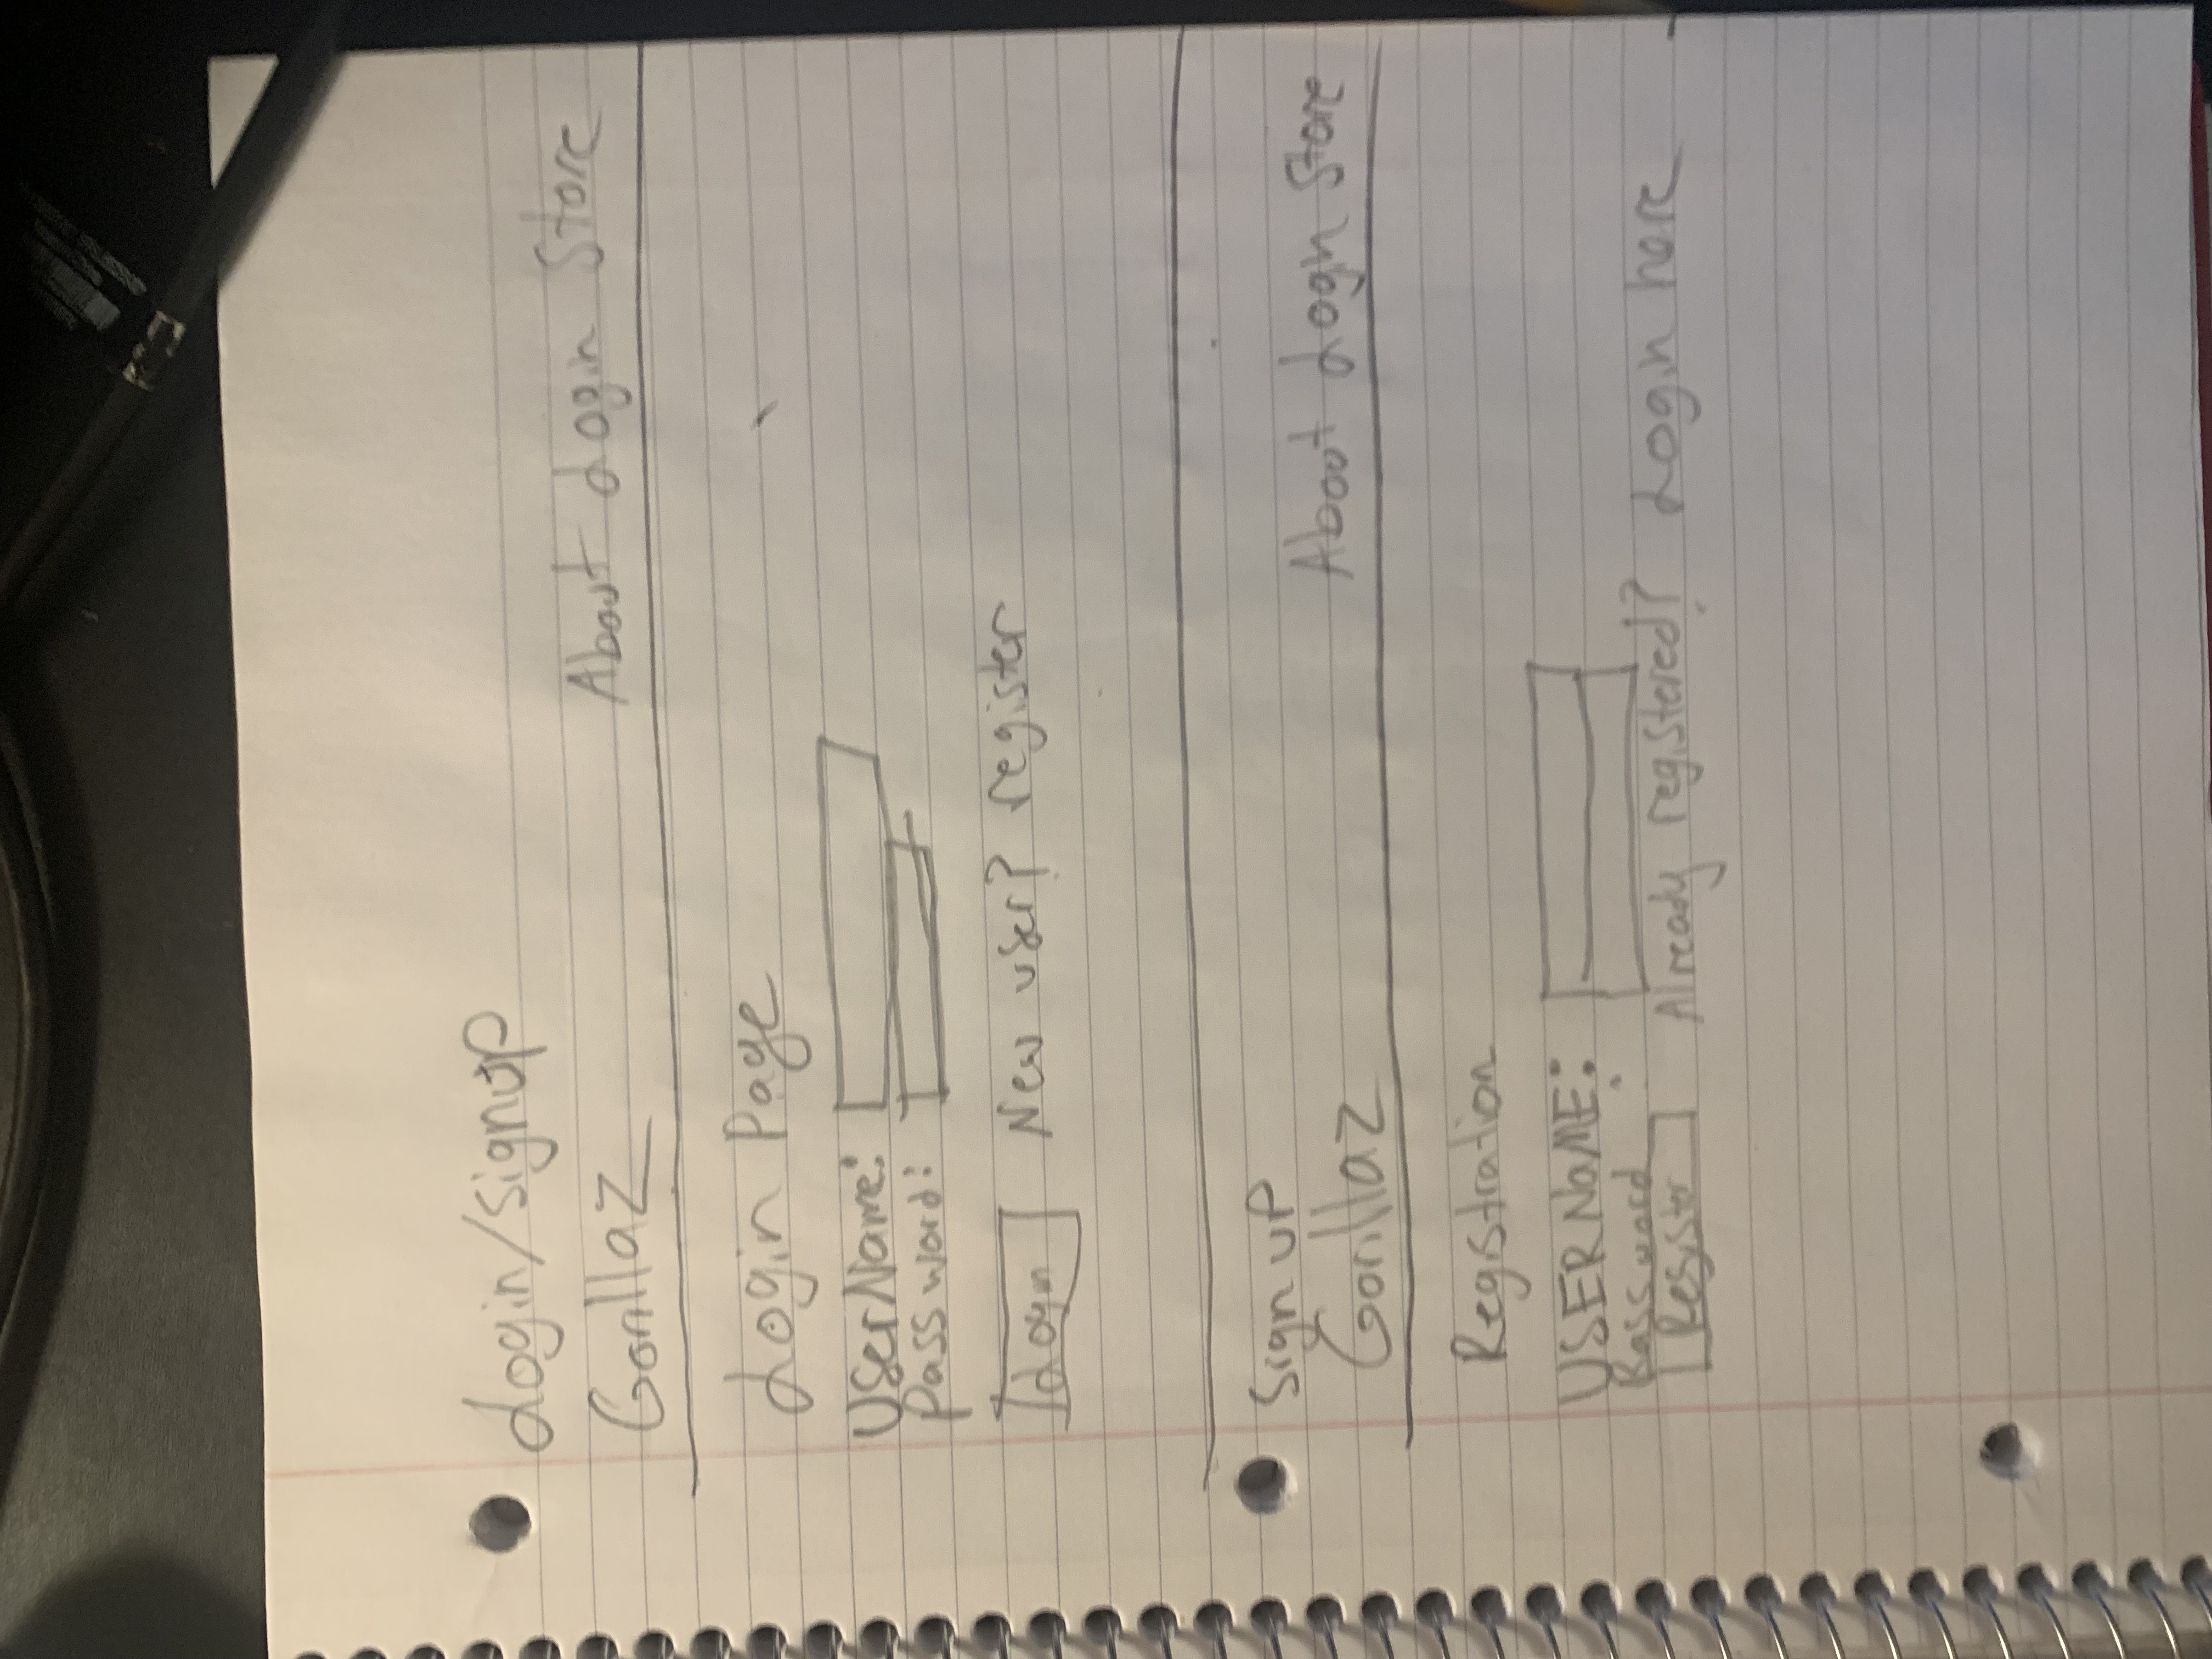 Login/signup
Gorillaz About Login Store
Login Page
UserName:
Password:
Login New user? register
Sign up
Gorillaz About Login Store
Registration
USERNaME:
Password :
Register Already registered? Login here